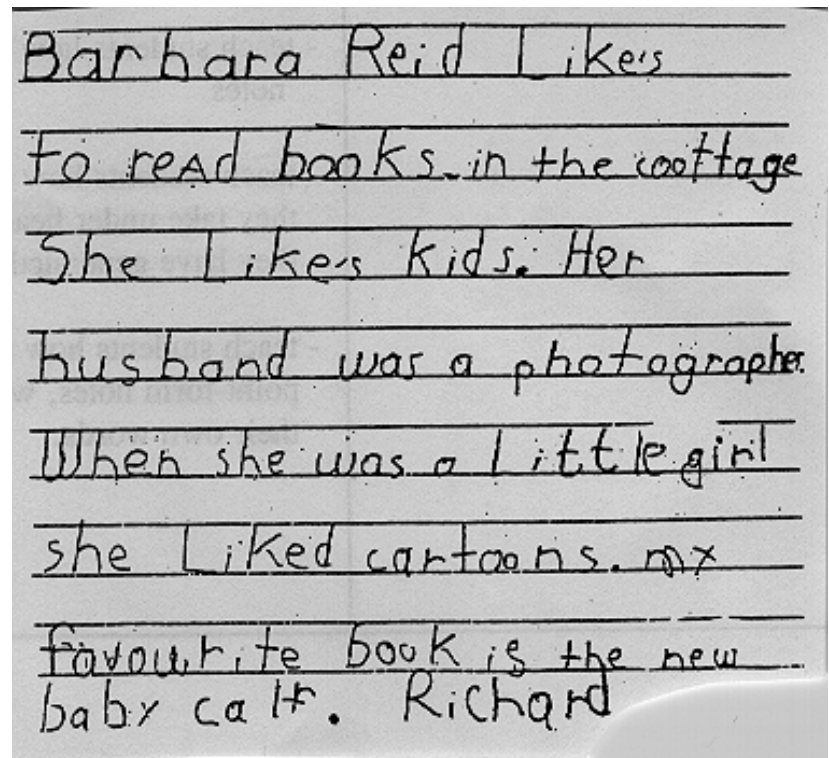 Barbara Reid Likes
to read books in the coottage
She Likes Kids. Her
husband was a photographer.
When she was a Little girl
she Liked cartoons. my
favourite book is the new
baby calf. Richard